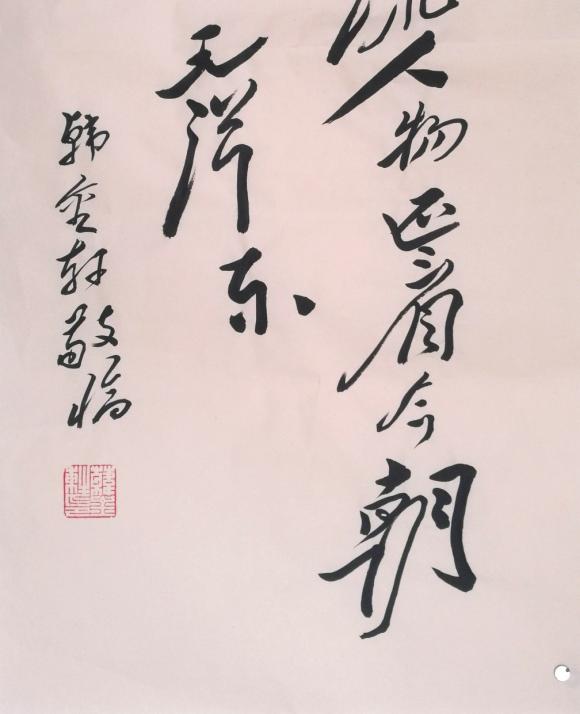 流人物还看今朝
毛泽东
韩金轩敬临